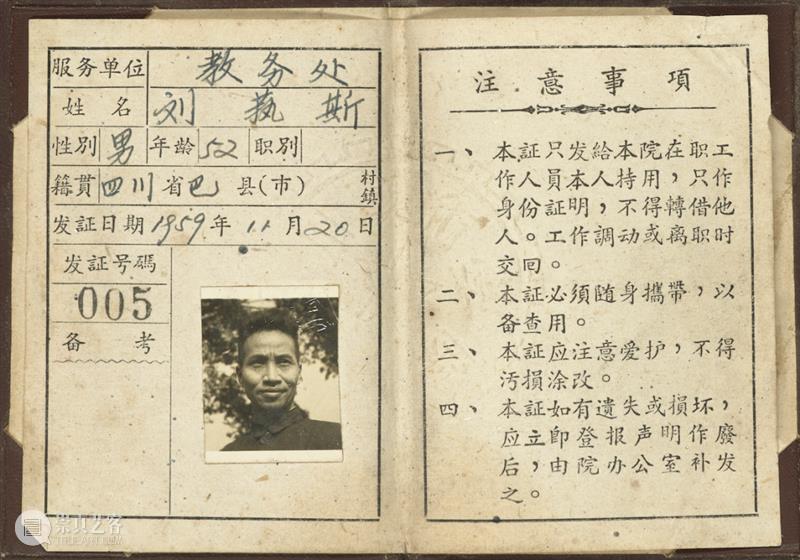 服务单位 教务处
姓名 刘藝斯
性别 男 年龄 52 职别
籍貫 四川省巴县(市) 村鎮
发证日期 1959年11月20日
发证号碼
005
备考
注意事項
一、本証只发給本院在职工
作人員本人持用,只作
身份証明,不得轉借他
人。工作調动或离职时
交回。
二、本証必须随身攜帶,以
备查用。
三、本証应注意爱护,不得
汚損涂改。
四、本証如有遺失或損坏,
应立卽登报声明作廢
后,由院办公室补发
之。
崇真艺客
TRUEART.COM